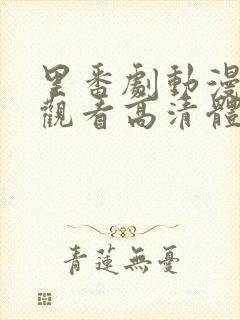 里番劇動漫
觀看高清體
青蓮無憂